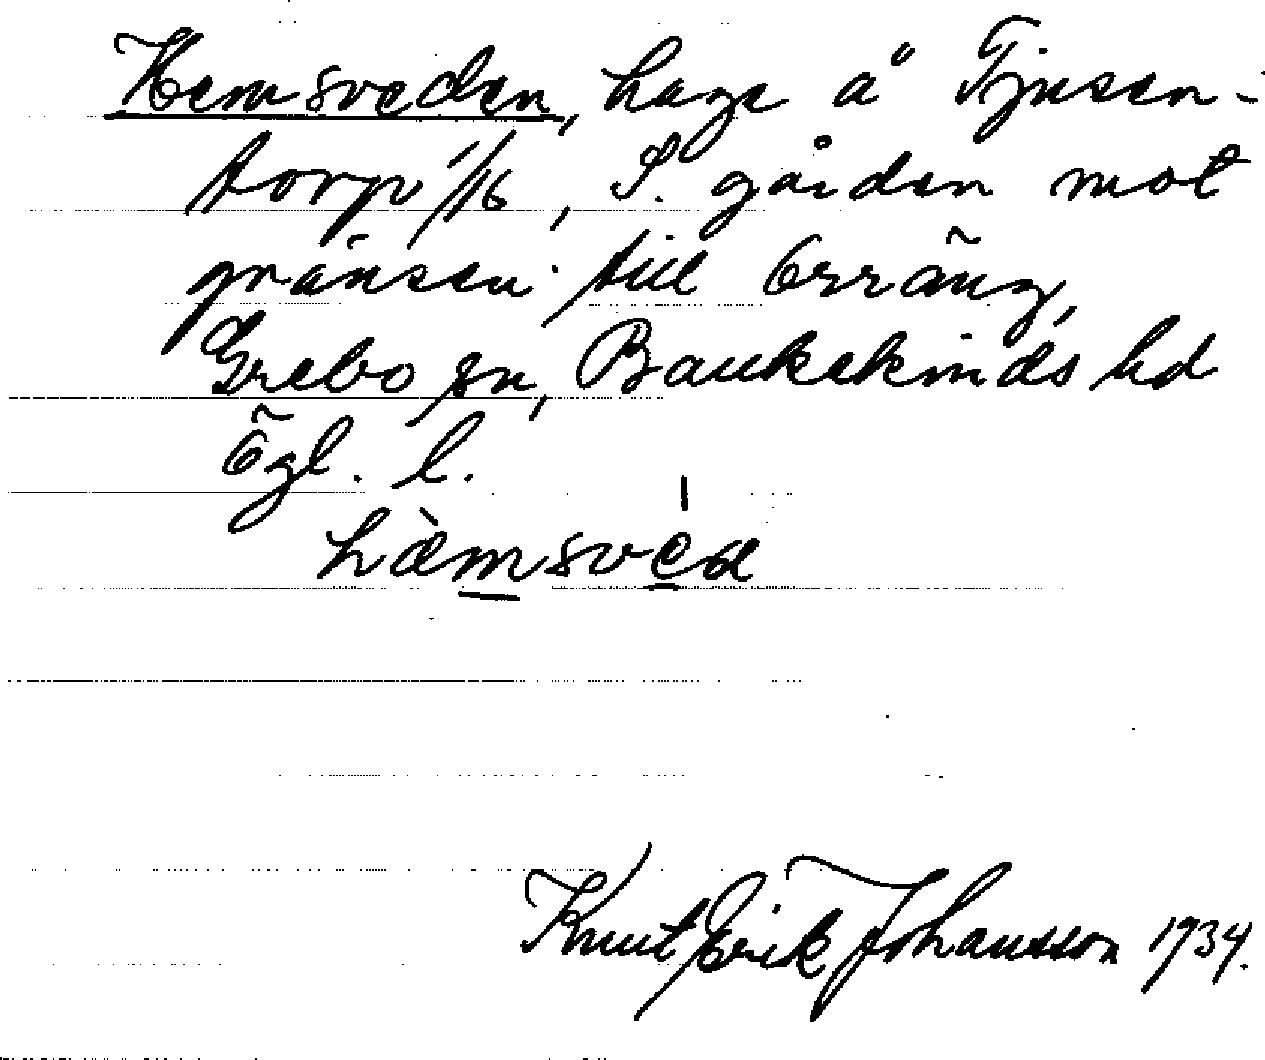 Hemsveden, hage å Tjusen-
torp 1/16, S. gården mot
gränsen till Örräng,
Grebo sn, Bankekinds hd
Ögl. l.
hæ̀msvéa
Knut Erik Johansson 1934.